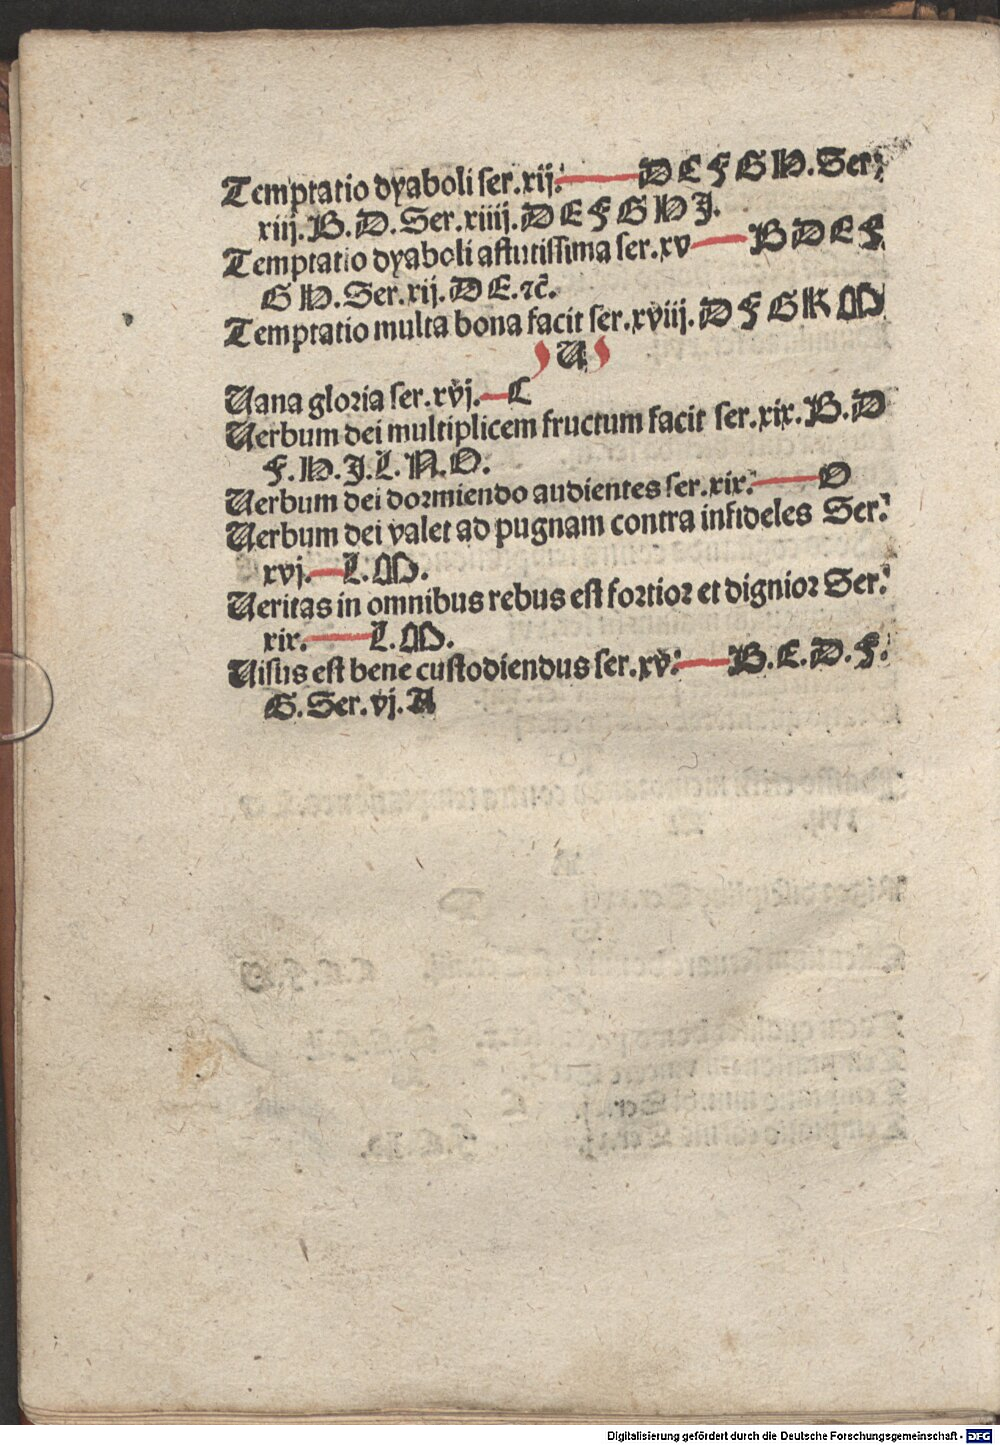 Temptatio dyaboli ser.xij. D E F G H. Ser.
xiij. B. D. Ser. xiiij. D E F G H J.
Temptatio dyaboli astutissima ser. xv B D E F
G H. Ser. xij. D E. ⁊c̄.
Temptatio multa bona facit ser. xviij. D F G K M
U
Uana gloria ser. xvj. C
Uerbum dei multiplicem fructum facit ser. xix. B. D
F. H. J. L. N. O.
Uerbum dei dormiendo audientes ser. xix. O
Uerbum dei valet ad pugnam contra infideles Ser.
xvj. L. M.
Ueritas in omnibus rebus est fortior et dignior Ser.
xix. L. M.
Uisus est bene custodiendus ser. xv. B. E. D. F.
G. Ser. vj. A
Digitalisierung gefördert durch die Deutsche Forschungsgemeinschaft - DFG